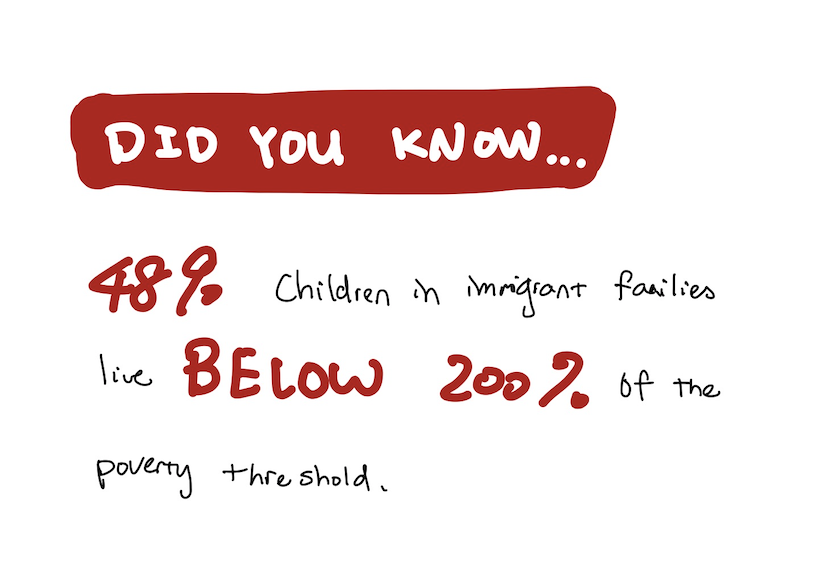 DID YOU KNOW...
48% Children in immigrant families
live BELOW 200% of the
poverty threshold.